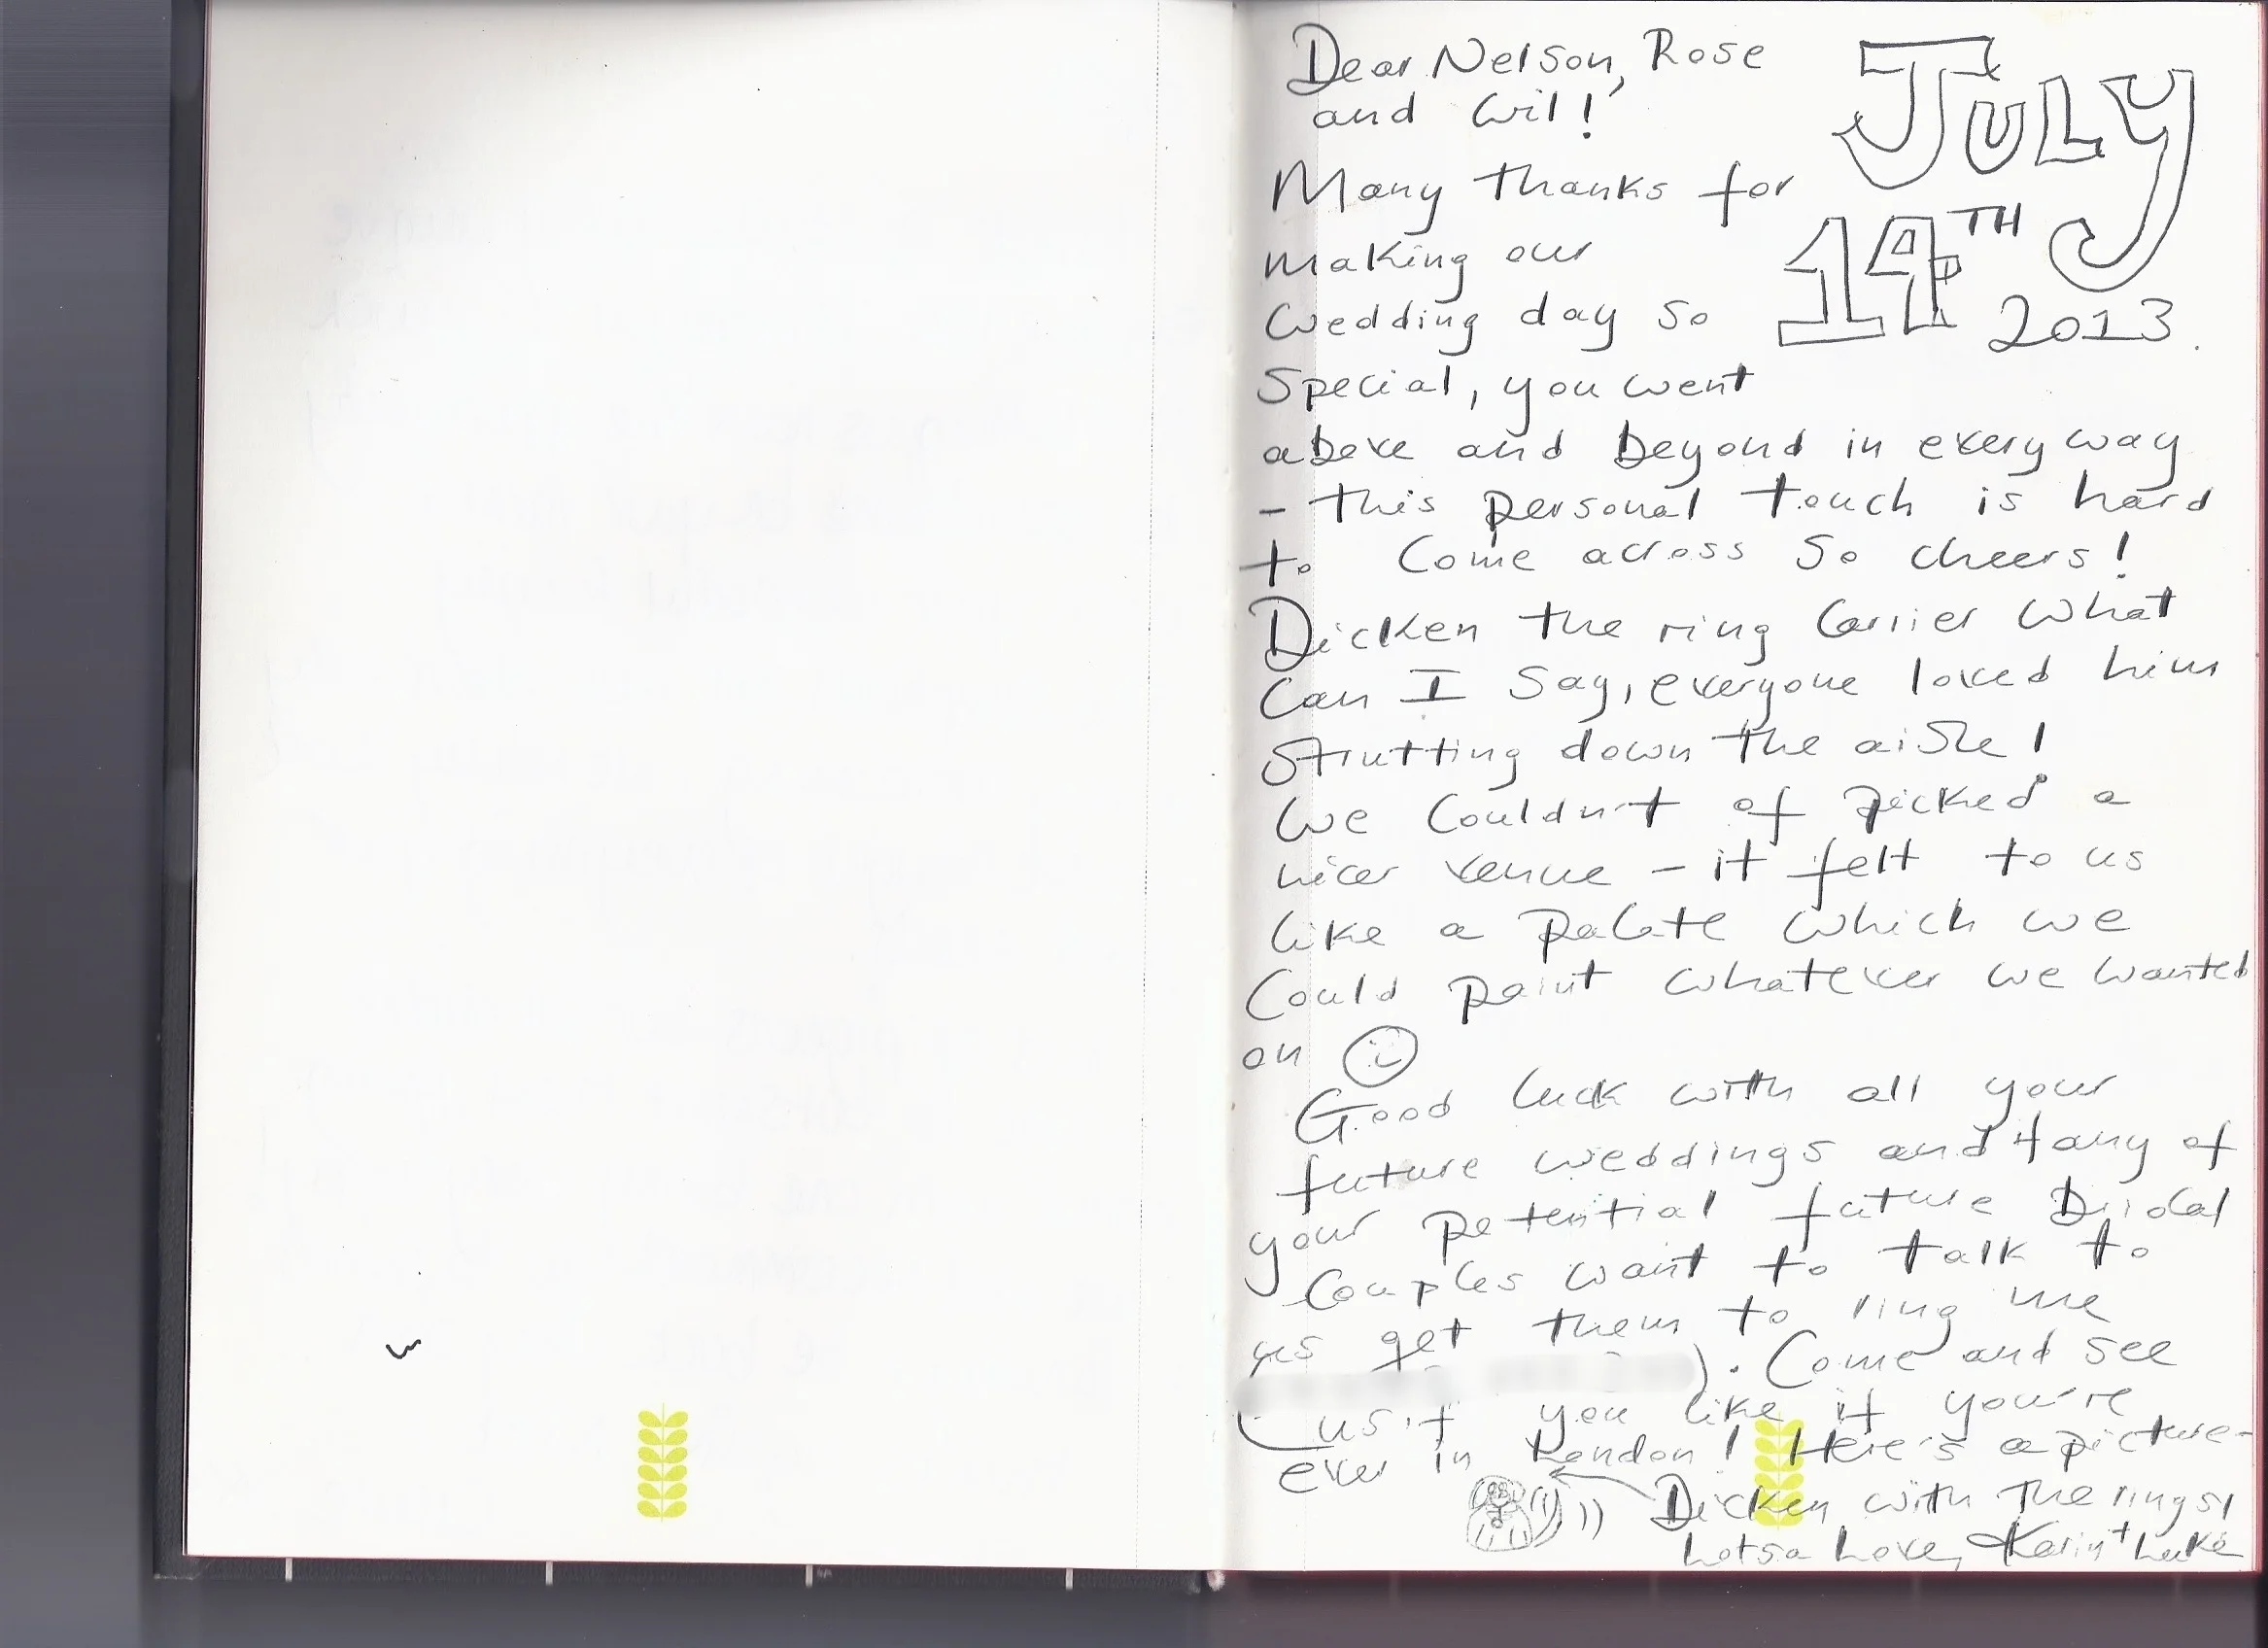 Dear Nelson, Rose
and Wil!
JULY
14TH
2013.
Many thanks for
making our
Wedding day so
Special, you went
above and beyond in every way
- this personal touch is hard
to come across so cheers!
Dicken the ring carrier what
Can I say, everyone loved him
Strutting down the aisle!
We couldn't of picked a
nicer venue - it felt to us
like a palate which we
Could paint whatever we wanted
on
Good luck with all your
future weddings and if any of
your potential future bridal
Couples want to talk to
us get them to ring me
). Come and see
us if you like if you're
ever in London! Here's a picture-
Dicken with the rings!
Lotsa Love, Karin + Luke